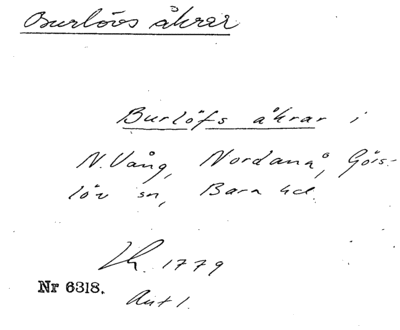 Burlövs åkrar
Burlöfs åkrar i
N. Vång, Nordanå, Görs-
löv sn, Bara hd.
Lh. 1779
Nr 6318.
Akt 1.